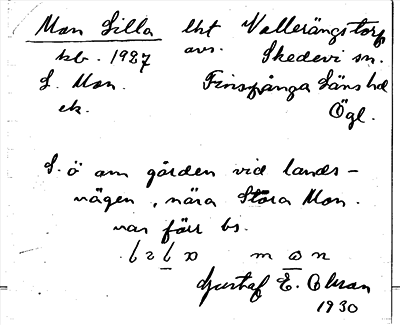 Mon Lilla lht Vallerängstorp
kb. 1927 avs. Skedevi sn.
L. Mon. Finspånga Läns hd
ek. Ögl.
S. ö om gården vid lands-
vägen, nära Stora Mon.
var förr bs.
mon
Gustaf E. Olsson
1930